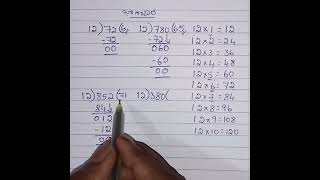 12)72(6 12)780(65
-72 -72↓
00 060
-60
00
12)852(71 12)380(
84↓
012
-12
00
12×1=12
12×2=24
12×3=36
12×4=48
12×5=60
12×6=72
12×7=84
12×8=96
12×9=108
12×10=120